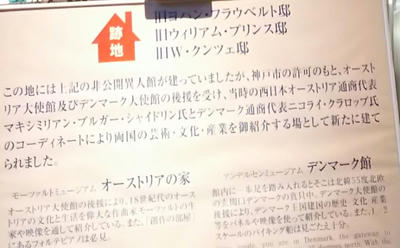 跡地
旧ヨハン・フラウベルト邸
旧ウィリアム・プリンス邸
旧W・クンツェ邸
この地には上記の非公開異人館が建っていましたが、神戸市の許可のもと、オースト
リア大使館及びデンマーク大使館の後援を受け、当時の西日本オーストリア通商代表
マキシミリアン・ブルガー・シャイドリン氏とデンマーク通商代表ニコライ・クラロップ氏
のコーディネートにより両国の芸術・文化・産業を御紹介する場として新たに建て
られました。
モーツァルトミュージアム オーストリアの家
オーストリア大使館の後援により、18世紀のオース
トリアの文化と生活を偉大な作曲家モーツァルトの生
家や映像を通して紹介しています。また「創作の部屋」
にあるフォルテピアノは必見。
アンデルセンミュージアム デンマーク館
館内に一歩足を踏み入れるとそこは北緯55度北欧
の玄関口デンマークの真只中。デンマーク大使館の
後援により、デンマーク王国建国の歴史 文化 産業
等をパネルや映像を使って紹介している。また、1/2
スケールのバイキング船は見ごたえ十分。